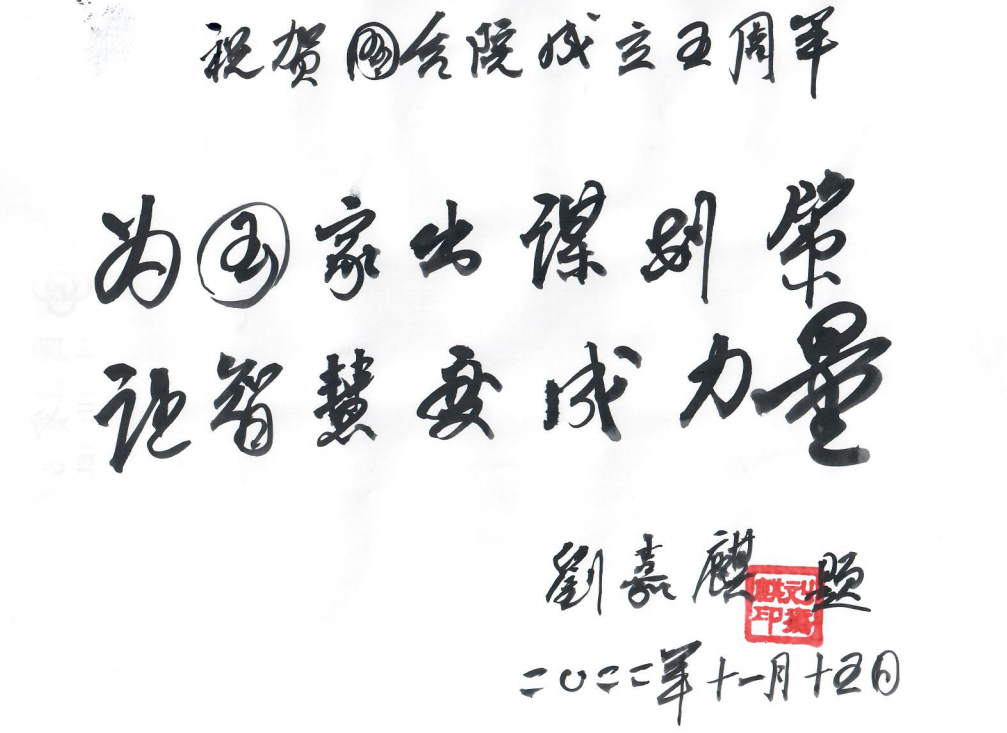 祝贺国合院成立五周年
为国家出谋划策
让智慧变成力量
劉嘉麒题
刘嘉麒印
二〇二二年十一月十五日